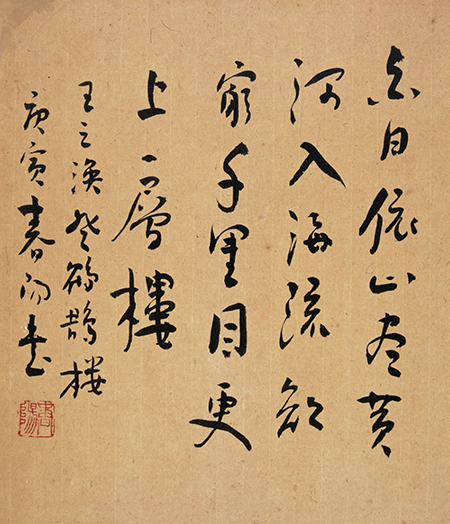 白日依山尽黄
河入海流欲
窮千里目更
上一層樓
王之涣登鹳鹊楼
庚寅春阳书